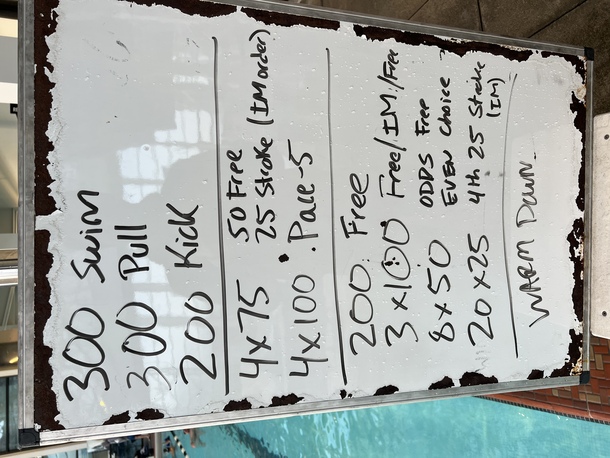 300 Swim
300 Pull
200 Kick
4x75 50 Free
25 Stroke (IM order)
4x100 . Pace-5
200. Free
3x100 Free/IM/Free
8x50 ODDS Free
EVEN Choice
20x25 4th 25 Stroke
(IM)
WARM DOWN.